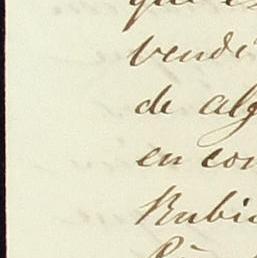 que es
vendi
de alg
en con
Rubi